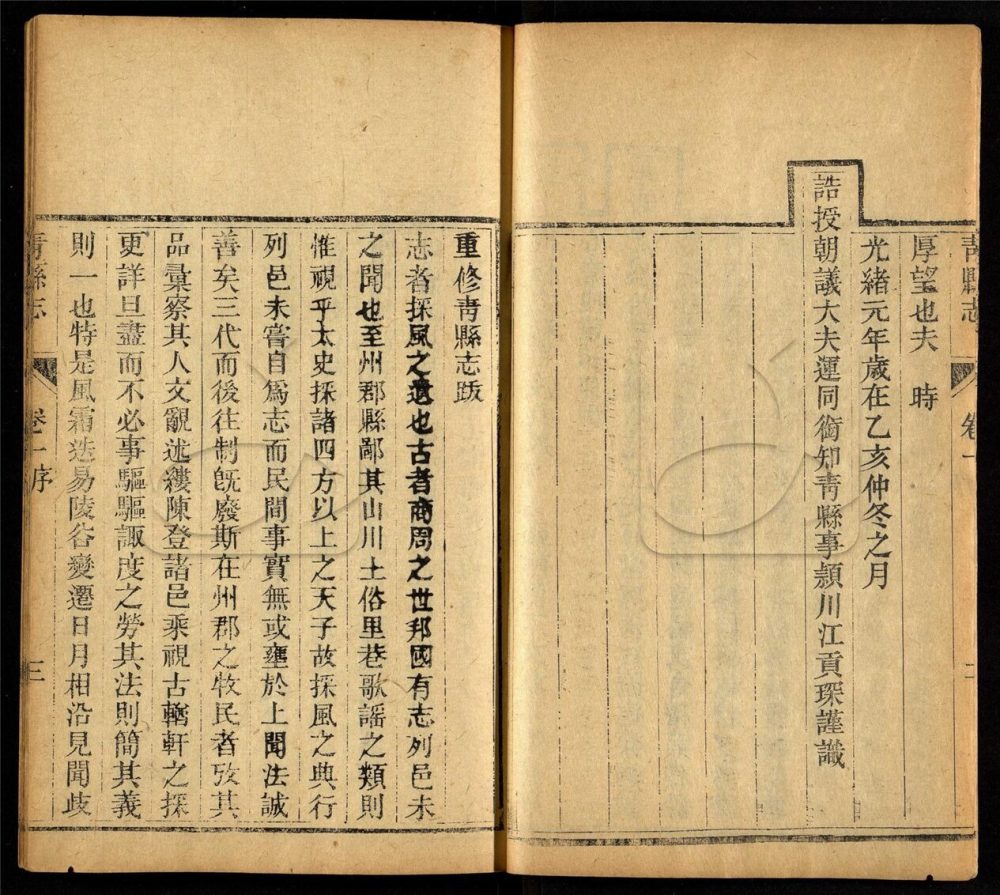 青縣志
卷一
二
厚望也夫 時
光緒元年歲在乙亥仲冬之月
誥授朝議大夫運同銜知青縣事潁川江貢琛謹識
重修青縣志跋
志者採風之遺也古者商周之世邦國有志列邑未
之聞也至州郡縣鄙其山川土俗里巷歌謠之類則
惟視乎太史採諸四方以上之天子故採風之典行
列邑未嘗自爲志而民間事實無或壅於上聞法誠
善矣三代而後往制旣廢斯在州郡之牧民者攷其
品彙察其人文覼述縷陳登諸邑乘視古輶軒之採
更詳且盡而不必事驅驅諏度之勞其法則簡其義
則一也特是風霜迭易陵谷變遷日月相沿見聞歧
青縣志
卷一序
三